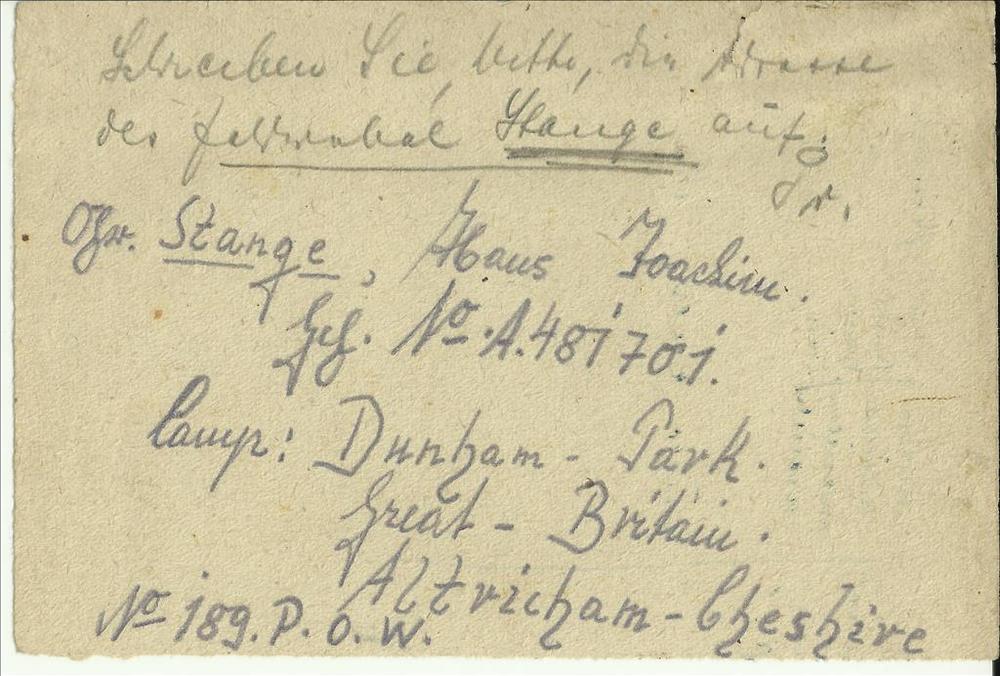 Schreiben Sie, bitte, die Adresse
des Feldwebel Stange auf.
Ofw. Stange, Hans Joachim.
Gef. No. A.481701.
Camp: Dunham - Park.
Great - Britain.
Altricham - Cheshire
No 189. P. O. W.